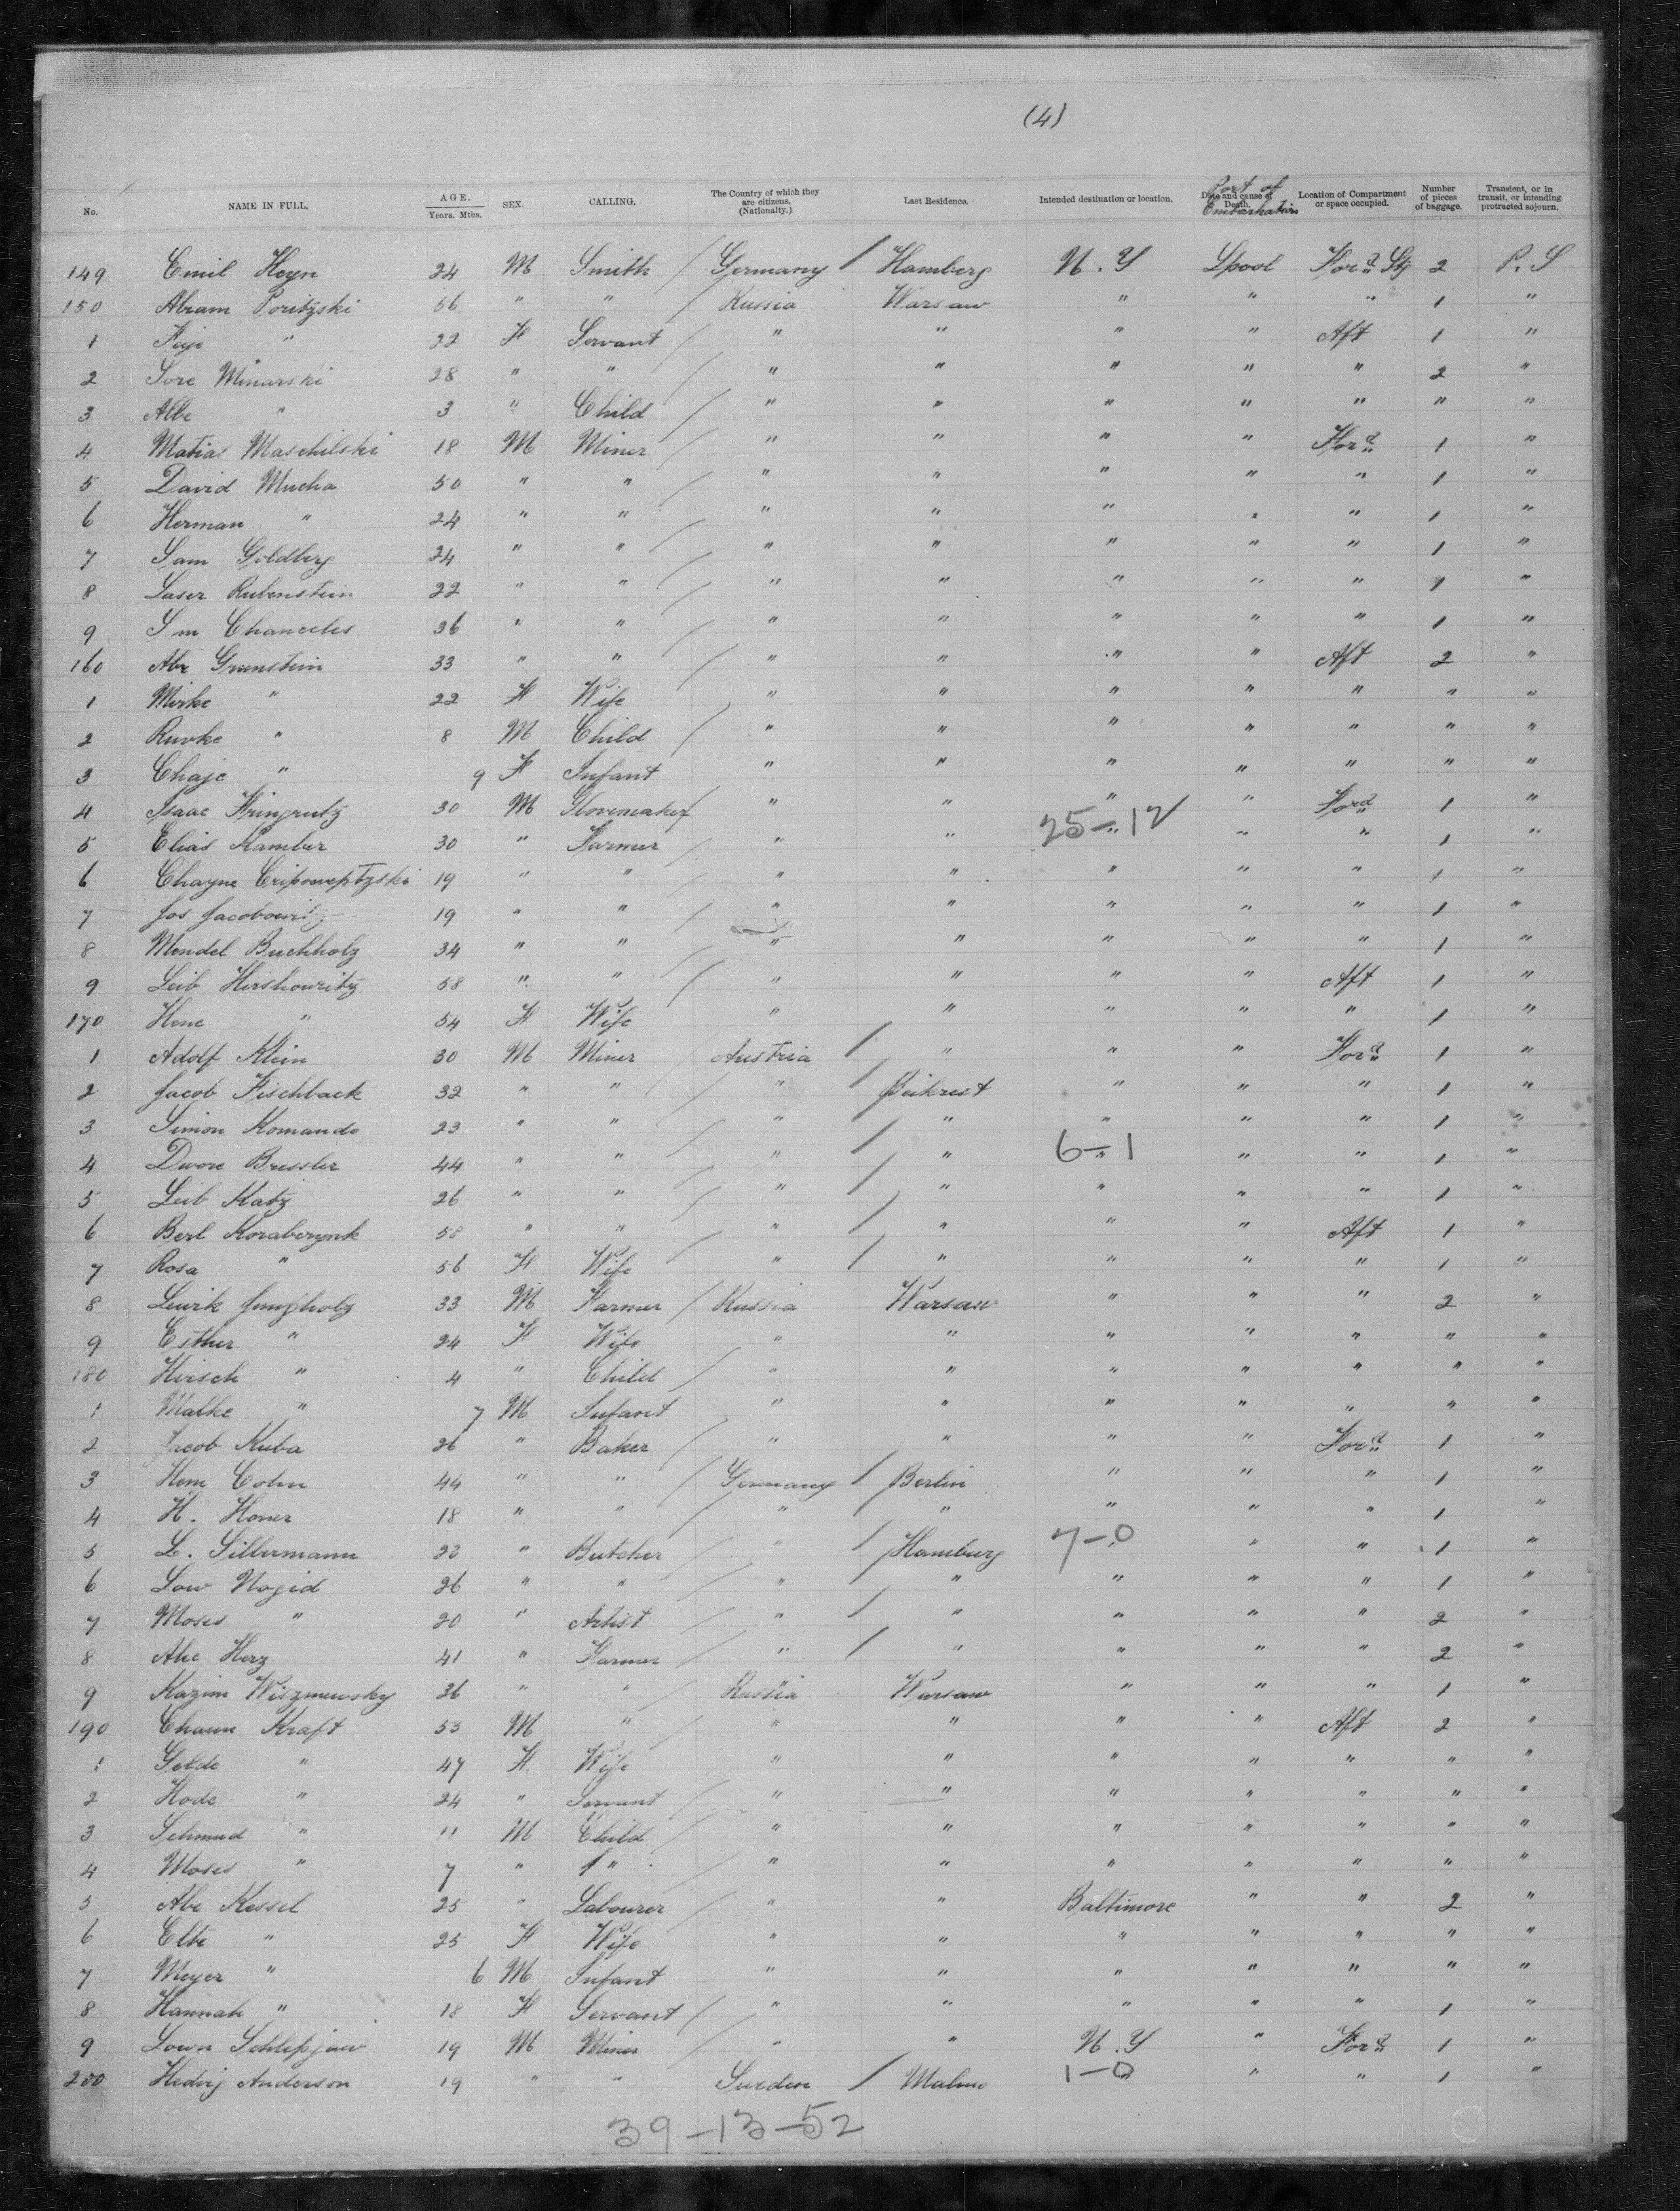 (4)
No. NAME IN FULL. AGE. Years. Mths. SEX. CALLING. The Country of which they are citizens. (Nationalty.) Last Residence. Intended destination or location. Date and cause of Death. Port of Embarkation Location of Compartment or space occupied. Number of pieces of baggage. Transient, or in transit, or intending protracted sojourn.
149 Emil Heyn 24 M Smith / Germany / Hamberg N.Y Lpool For'd Stg 2 P.S
150 Abram Poritzski 56 " " / Russia Warsaw " " " 1 "
1 Feige " 22 F Servant / " " " " Aft 1 "
2 Sore Minarski 28 " " / " " " " " 2 "
3 Abbe " 3 " Child / " " " " " " "
4 Matias Maschilski 18 M Miner / " " " " For'd 1 "
5 David Mucha 50 " " / " " " " " 1 "
6 Herman " 24 " " / " " " " " 1 "
7 Sam Goldberg 24 " " / " " " " " 1 "
8 Laser Rubenstein 22 " " / " " " " " 1 "
9 Sm Chanceles 36 " " / " " " " " 1 "
160 Abr Grunstein 33 " " / " " " " Aft 2 "
1 Mirke " 22 F Wife " " " " " " "
2 Ruvke " 8 M Child / " " " " " " "
3 Chaje " 9 F Infant " " " " " " "
4 Isaac 30 M Glovemaker / " " " " For'd 1 "
5 Elias Kamber 30 " Farmer / " " 25-12 " " " 1 "
6 Chayne 19 " " / " " " " " 1 "
7 Jos Jacobowitz 19 " " / " " " " " 1 "
8 Mendel Buchholz 34 " " / " " " " " 1 "
9 Leib Hirshowitz 58 " " / " " " " Aft 1 "
170 Hene " 54 F Wife " " " " " 1 "
1 Adolf Klein 30 M Miner / Austria / " " " For'd 1 "
2 Jacob Fischback 32 " " / " / " " " 1 "
3 Simon Komando 23 " " / " " " " " 1 "
4 Dwore Bressler 44 " " / " / " 6-1 " " " 1 "
5 Leib Katz 26 " " / " / " " " " 1 "
6 Berl 58 " " / " / " " " Aft 1 "
7 Rosa " 56 F Wife " / " " " " 1 "
8 33 M Farmer / Russia Warsaw " " " 2 "
9 Esther " 24 F Wife " " " " " " "
180 Hirsch " 4 " Child / " " " " " " "
1 Malke " 7 M Infant " " " " " " "
2 Jacob Kuba 26 " Baker / " " " " For'd 1 "
3 Hem Cohn 44 " " / Germany / Berlin " " " 1 "
4 H. Honer 18 " " / " " " " " 1 "
5 L. Sillermann 23 " Butcher / " / Hamburg 7-0 " " " 1 "
6 Low Nogid 26 " " / " " " " " 1 "
7 Moses " 20 " Artist / " / " " " " 2 "
8 Abe Herz 41 " Farmer / " / " " " " 2 "
9 Kazim Wiszmewsky 36 " " Russia Warsaw " " " 1 "
190 Chaum Kraft 53 M " / " " " " Aft 2 "
1 Golde " 47 F Wife " " " " " " "
2 Hode " 24 " Servant / " " " " " " "
3 Schmud " 11 M Child / " " " " " " "
4 Moses " 7 " " / " " " " " " "
5 Abe Kessel 25 " Labourer / " " Baltimore " " 2 "
6 Elte " 25 F Wife " " " " " " "
7 Meyer " 6 M Infant " " " " " " "
8 Hannah " 18 F Servant / " " " " " 1 "
9 19 M Miner / " " N.Y " For'd 1 "
200 Hedvig Anderson 19 " " Sweden / Malmo 1-0 " " " 1 "
39-13-52